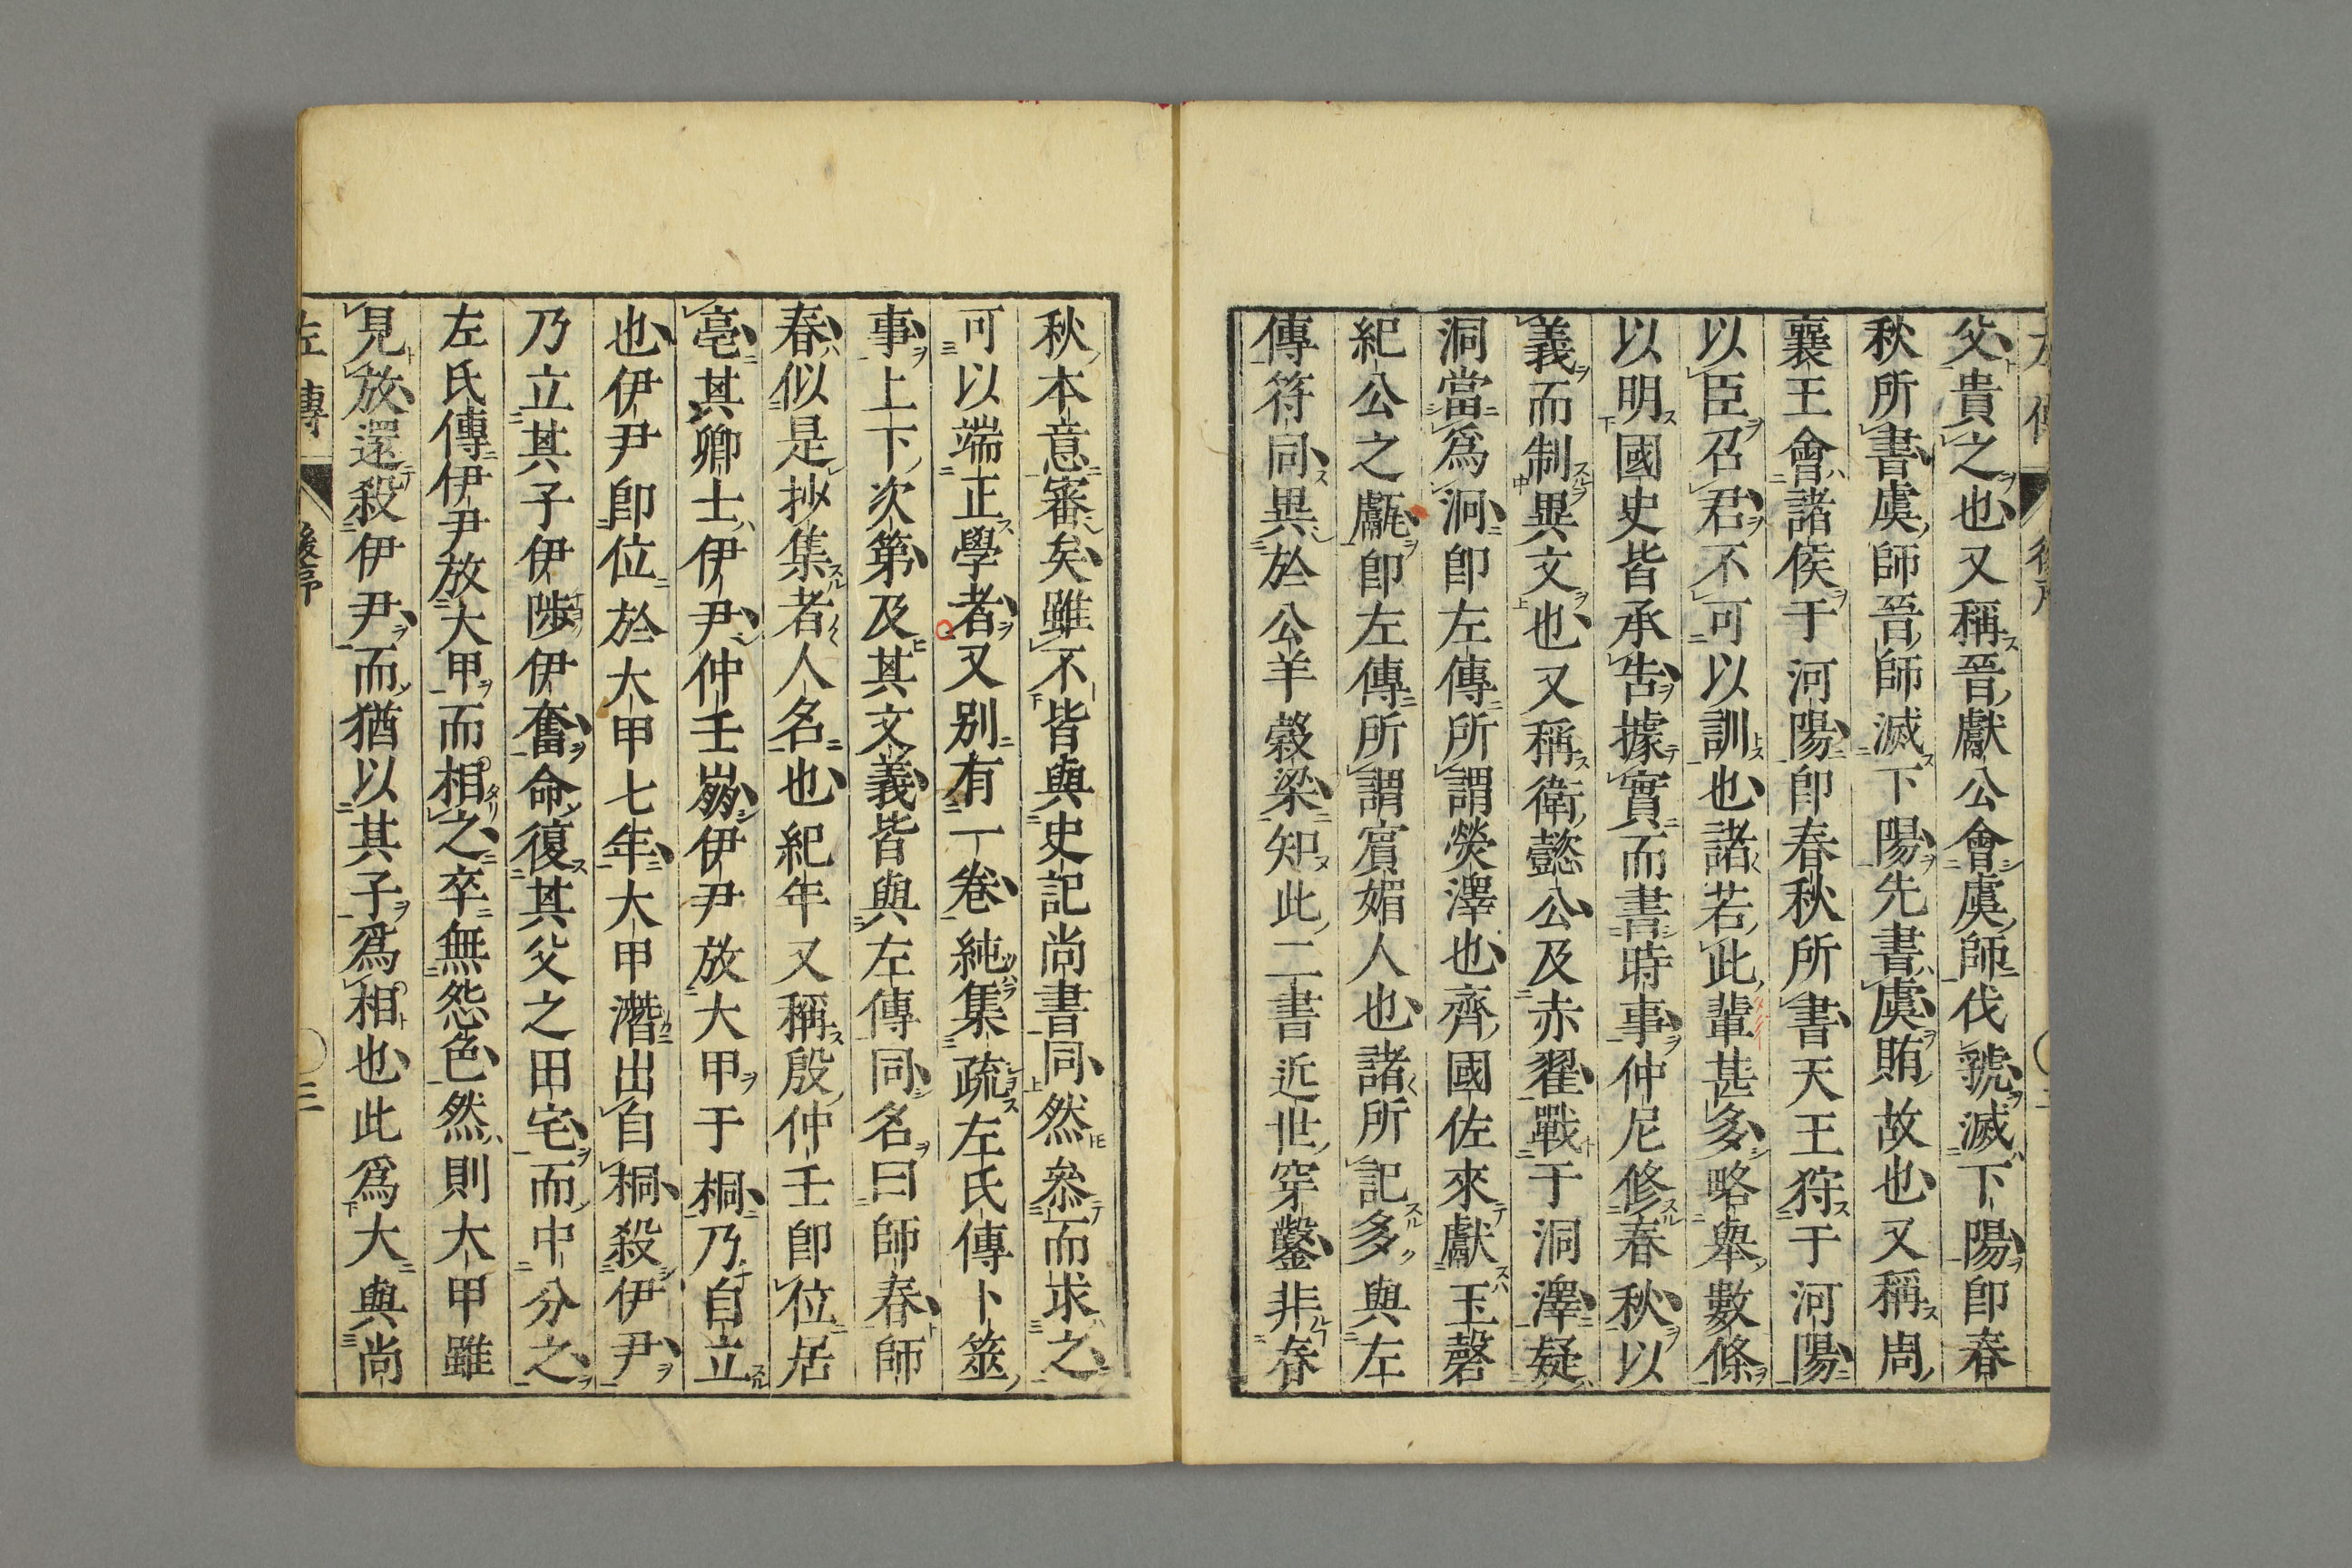 父貴之也又稱晉獻公會虞師伐虢滅下陽卽春
秋所書虞師晉師滅下陽先書虞賄故也又稱周
襄王會諸侯于河陽卽春秋所書天王狩于河陽
以臣召君不可以訓也諸若此輩甚多略舉數條
以明國史皆承告據實而書時事仲尼修春秋以
義而制異文也又稱衛懿公及赤翟戰于洞澤疑
洞當爲泂卽左傳所謂熒澤也齊國佐來獻玉磬
紀公之甗卽左傳所謂賓媚人也諸所記多與左
傳符同異於公羊穀梁知此二書近世穿鑿非春
秋本意審矣雖不皆與史記尚書同然叅而求之
可以端正學者又別有一卷純集疏左氏傳卜筮
事上下次第及其文義皆與左傳同名曰師春師
春似是抄集者人名也紀年又稱殷仲壬卽位居
亳其卿士伊尹仲壬崩伊尹放大甲于桐乃自立
也伊尹卽位於大甲七年大甲潛出自桐殺伊尹
乃立其子伊陟伊奮命復其父之田宅而中分之
左氏傳伊尹放大甲而相之卒無怨色然則大甲雖
見放還殺伊尹而猶以其子爲相也此爲大與尚
左傳
後序
三